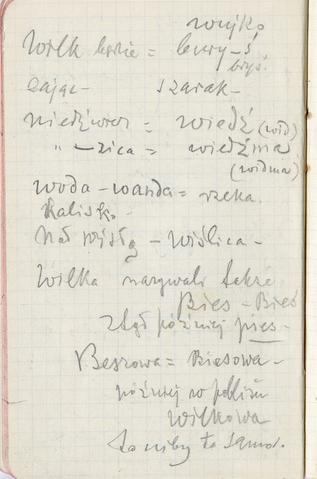 wujko
Wilk bozie = bury-ś
bryś
Zając - szarak -
niedźwiedź = wiedź (wid)
" -zica = wiedźma
(widma)
woda - wanda = rzeka
Kalisko
Nad wisłą - wiślica -
Wilka nazywali także
Bies - Bieś
stąd później pies -
Beszowa = Biesowa -
później w pobliżu
Wilkowa
to niby to samo.